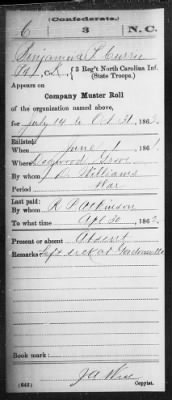 (Confederate.)
C 3 N.C.
Benjamin F. Currie
Pvt., Co. K, 3 Reg't North Carolina Inf.
(State Troops.)
Appears on
Company Muster Roll
of the organization named above,
for July 14 to Oct 31, 186
Enlisted:
When June 1, 186
Where Grove
By whom J. D. Williams
Period War
Last paid:
By whom R. P. Atkinson
To what time Apl 30, 186
Present or absent Absent
Remarks: Left sick at Gordonsville
Book mark:
(642) Copyist.